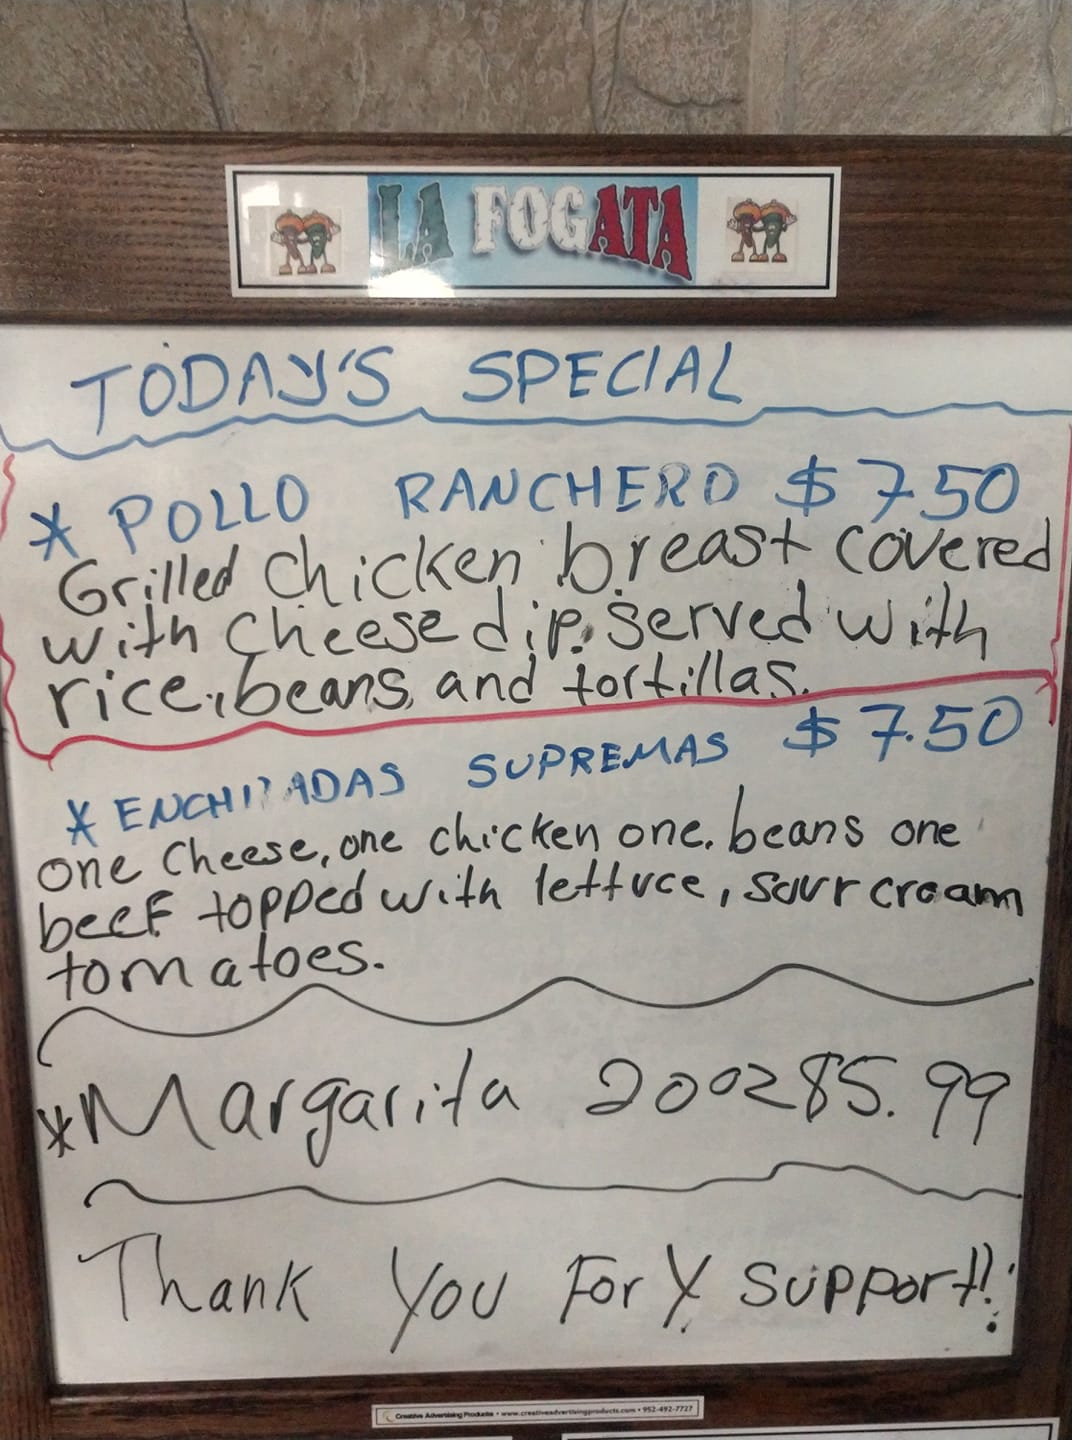 LA FOGATA
TODAY'S SPECIAL
* POLLO RANCHERO $7.50
Grilled chicken breast covered
with cheese dip. Served with
rice, beans, and tortillas.
* ENCHILADAS SUPREMAS $7.50
one cheese, one chicken one. beans one
beef topped with lettuce, sour cream
tomatoes.
*Margarita 20oz $5.99
Thank You For Y support!!
Creative Advertising Products • www.creativeadvertisingproducts.com • 952-492-7727